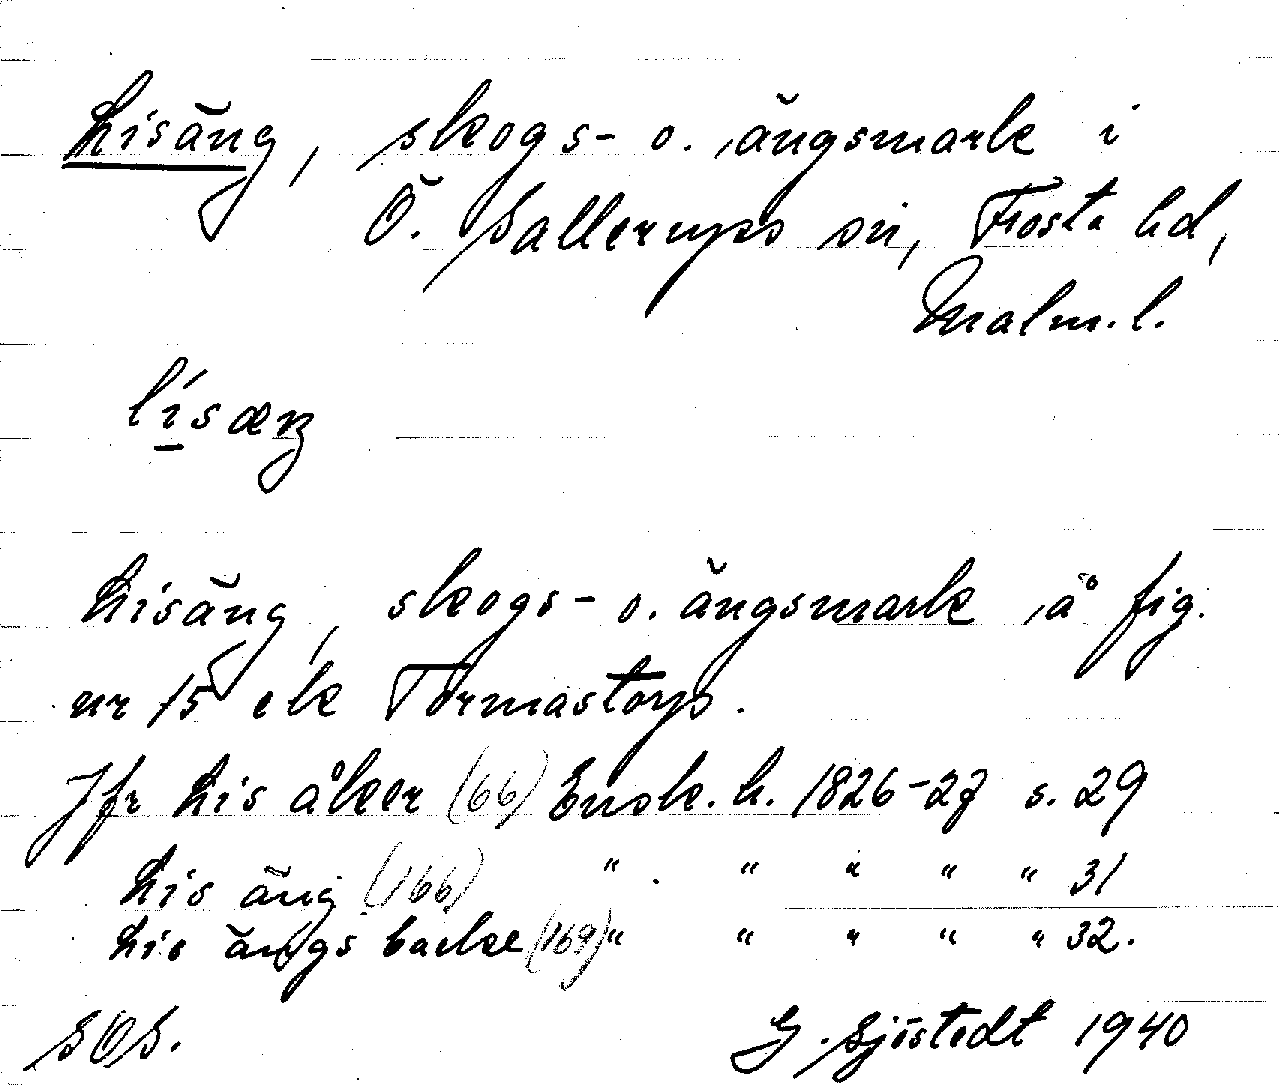 Lisäng, skogs- o. ängsmark i
Ö. Sallerups sn, Frosta hd,
Malm.l.
lísæŋ
Lisäng, skogs- o. ängsmark å fig.
nr 15 ek Tormastorp.
Jfr Lis åker (66) Ensk. h. 1826-27 s. 29
Lis äng (166) " " " " " 31
Lis ängs backe (169) " " " " " 32.
SOS.
G. Sjöstedt 1940